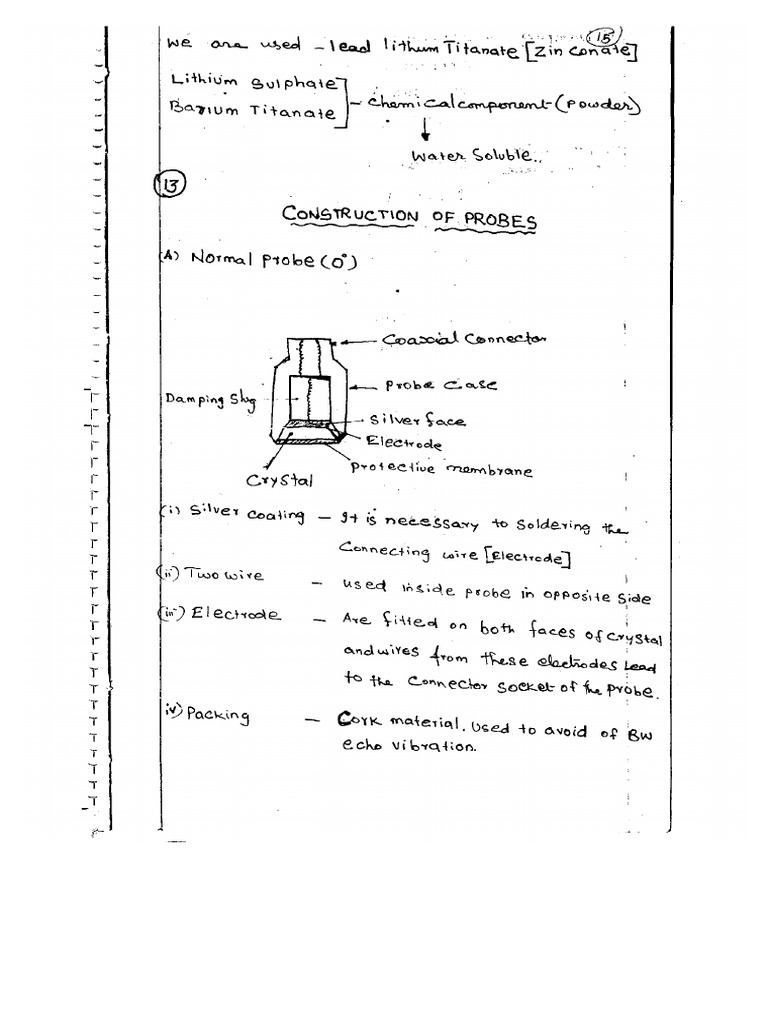 15
We are used - lead lithum Titanate [Zin conate]
Lithium Sulphate
Barium Titanate
- chemical component (Powder)
Water Soluble..
13
CONSTRUCTION OF PROBES
(A) Normal Probe (0°)
Coaxial Connector
Probe Case
Damping Slug
Silver face
Electrode
Protective membrane
Crystal
(i) Silver coating - It is necessary to soldering the
Connecting wire [Electrode]
(ii) Two wire - used inside probe in opposite side
(iii) Electrode - Are fitted on both faces of crystal
and wires from these electrodes Lead
to the Connector socket of the probe.
iv) Packing - Cork material. used to avoid of BW
echo vibration.